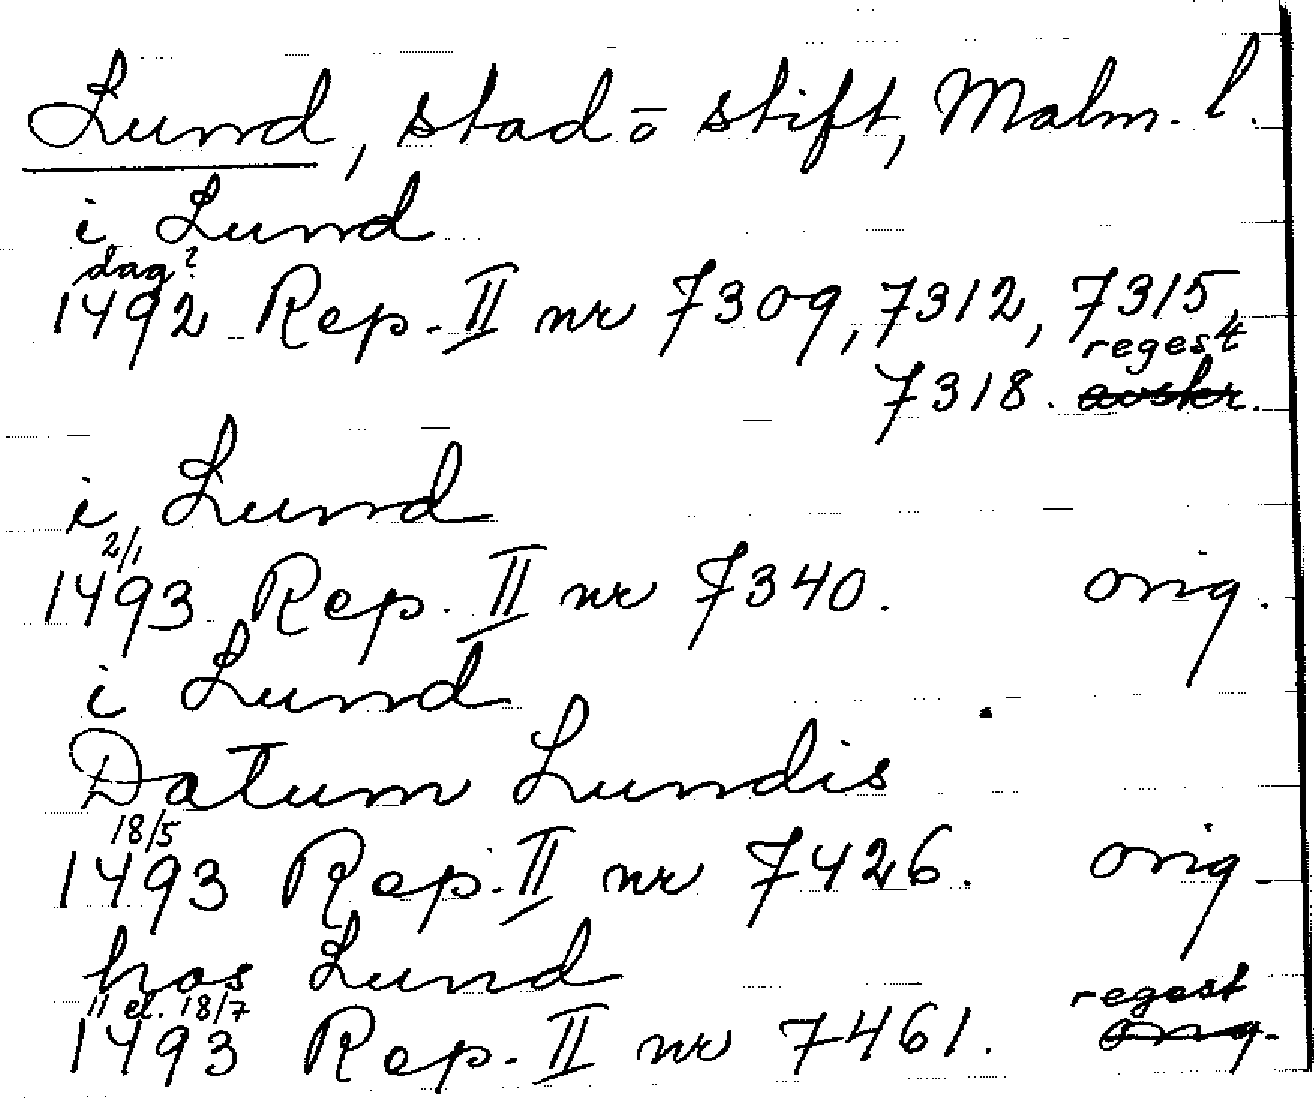 Lund, stad ō stift, Malm. l.
i Lund
dag?
1492 Rep. II nr 7309, 7312, 7315,
regest
7318. avskr.
i Lund
2/1
1493 Rep. II nr 7340. orig.
i Lund
Datum Lundis
18/5
1493 Rep. II nr 7426. orig.
hos Lund
11 el. 18/7 regest
1493 Rep. II nr 7461. orig.